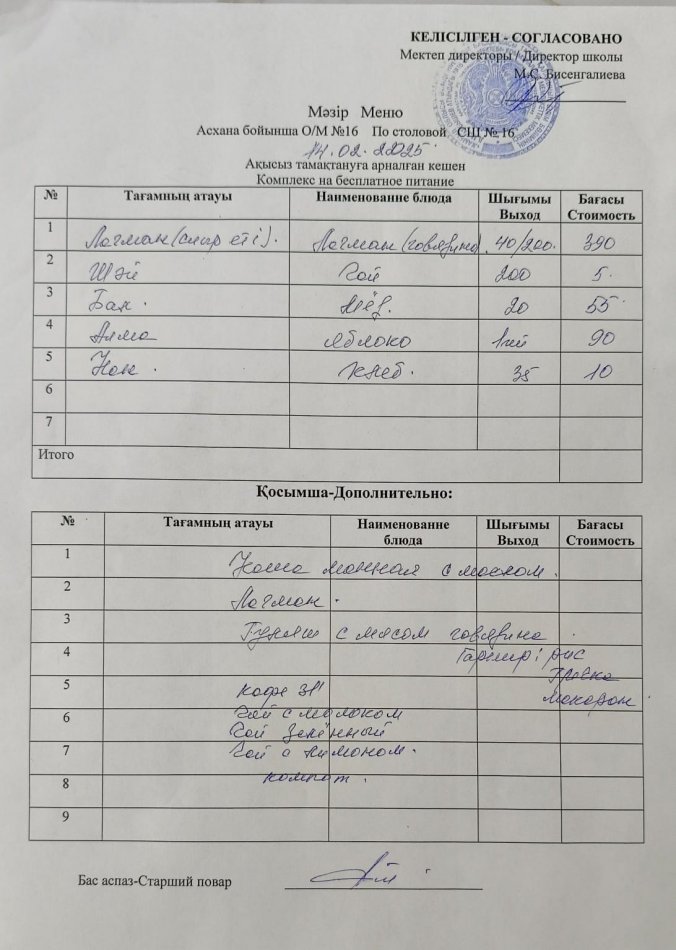 КЕЛІСІЛГЕН - СОГЛАСОВАНО
Мектеп директоры / Директор школы
М.С. Бисенгалиева
Мәзір Меню
Асхана бойынша О/М №16 По столовой СШ № 16
14.02.2025
Ақысыз тамақтануға арналған кешен
Комплекс на бесплатное питание
№ Тағамның атауы Наименование блюда Шығымы Выход Бағасы Стоимость
1 Лагман (сиыр еті). Лагман (говядина) 40/200. 390
2 Шәй Чай 200 5.
3 Бал. Мёд. 20 55
4 Алма Яблоко 1шт 90
5 Нан. Хлеб. 35 10
6
7
Итого
Қосымша-Дополнительно:
№ Тағамның атауы Наименование блюда Шығымы Выход Бағасы Стоимость
1 Каша манная с маслом.
2 Лагман.
3 Гуляш с мясом говядина.
4 Гарнир: рис
Гречка
5 кофе 3в1 макарон
6 Чай с молоком
Чай зелённый
7 Чай с лимоном.
8 компот.
9
Бас аспаз-Старший повар